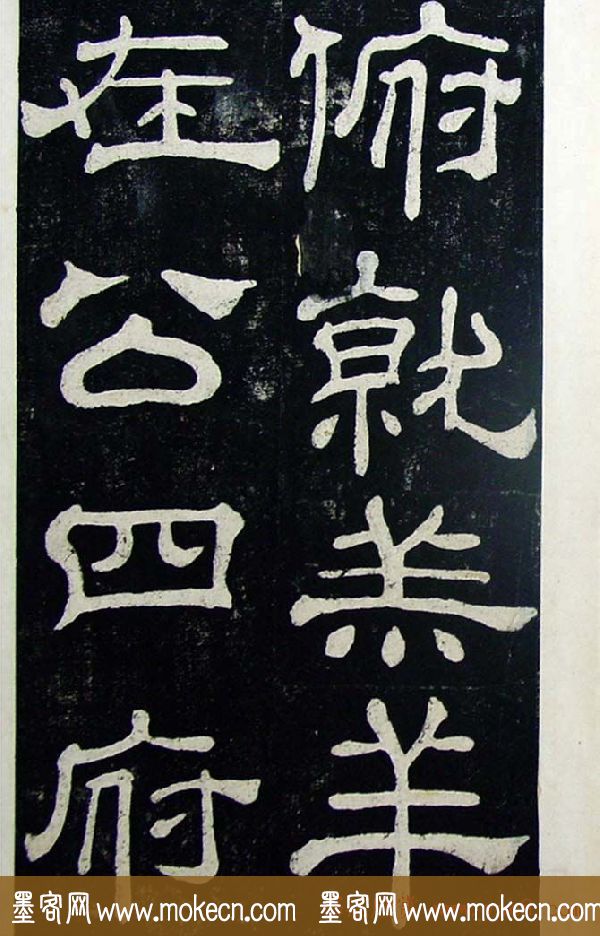 俯就羔羊
在公四府
墨客网 www.mokecn.com 墨客网 www.mokecn.com